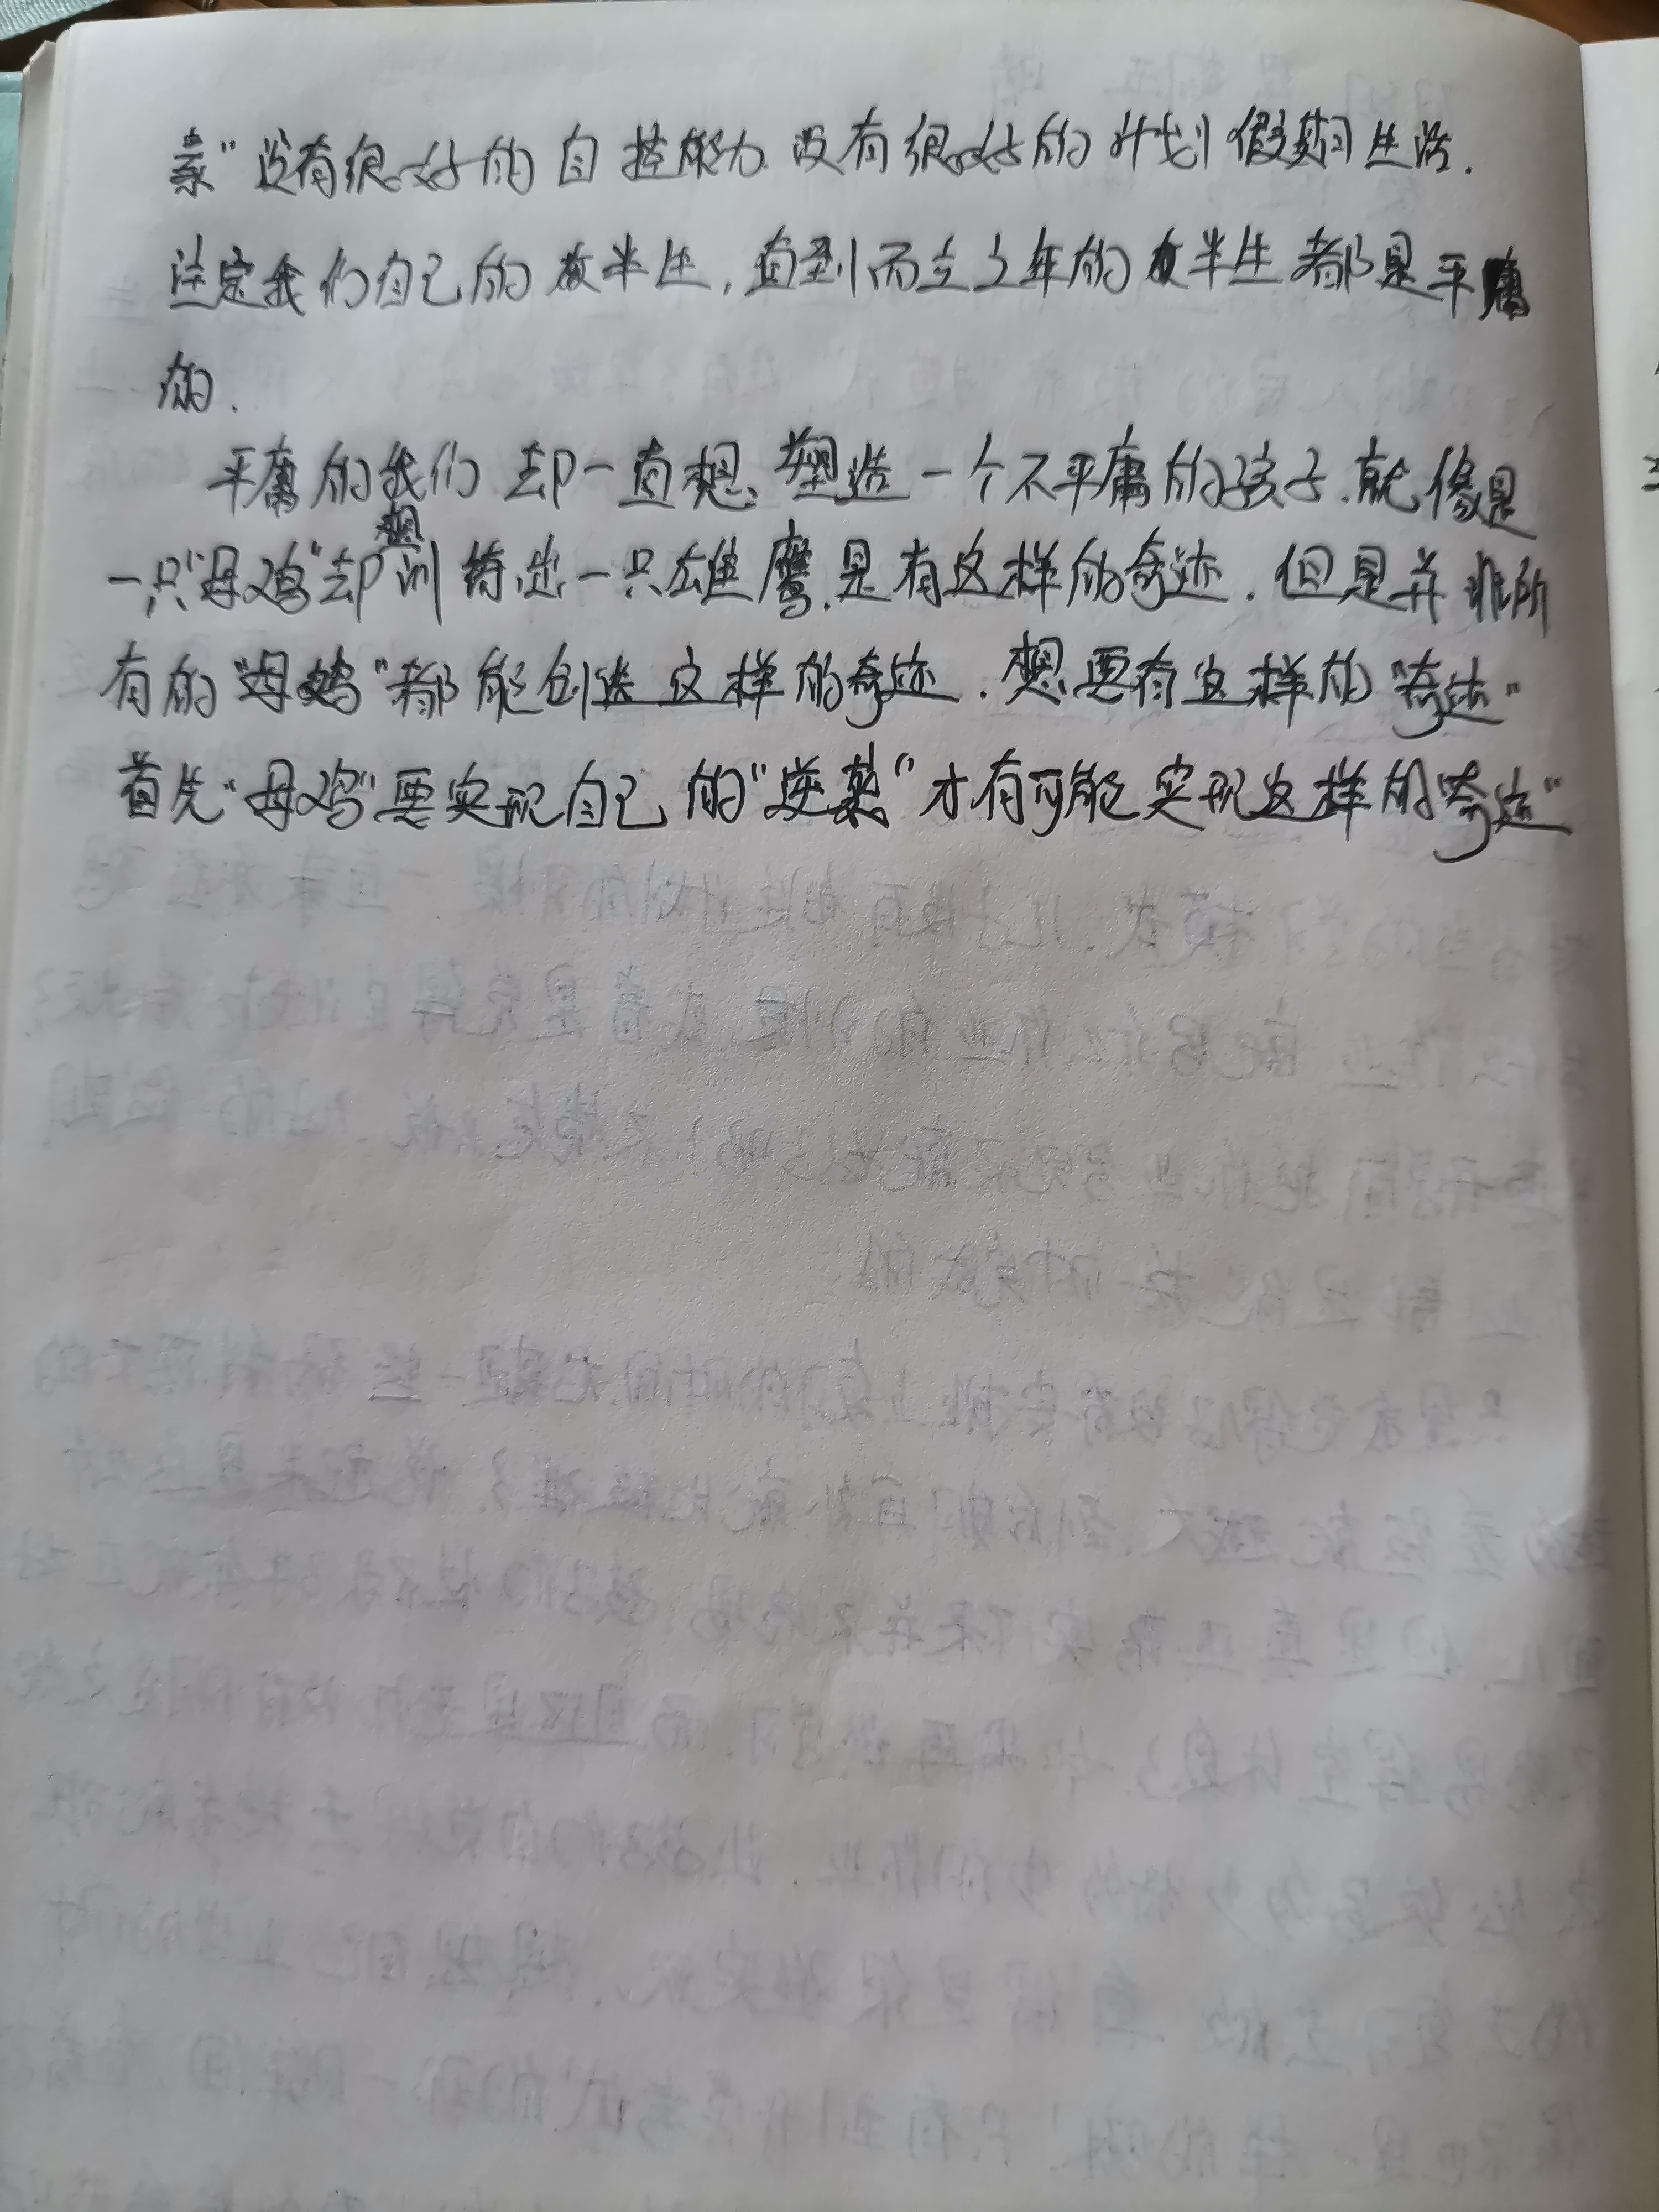 素"没有很好的自控能力.没有很好的计划假期生活.
注定我们自己的前半生,直到而立之年的前半生都是平庸
的.
平庸的我们却一直想塑造一个不平庸的孩子.就像是
一只"母鸡"却想训练出一只雄鹰.是有这样的奇迹.但是并非所
有的"母鸡"都能创造这样的奇迹.想要有这样的"奇迹"
首先"母鸡"要实现自己的"逆袭"才有可能实现这样的"奇迹"